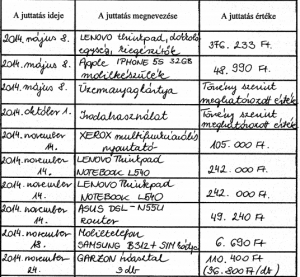 A juttatás ideje
A juttatás megnevezése
A juttatás értéke
2014. május 8.
LENOVO thinkpad, dokkoló
egység, kiegészítők
376. 233 Ft.
2014. május 8.
Apple IPHONE 5S 32GB
mobilkészülék
48. 990 Ft.
2014. május 8.
Üzemanyagkártya
Törvény szerint
meghatározott érték
2014. október 1.
Irodahasználat
Törvény szerint
meghatározott érték
2014. november
14.
XEROX multifunkcionális
nyomtató
105. 000 Ft.
2014. november
14.
LENOVO Thinkpad
NOTEBOOK L540
242. 000 Ft.
2014. november
14.
LENOVO Thinkpad
NOTEBOOK L540
242. 000 Ft.
2014. november
14.
ASUS DSL-N55U
Router
49. 240 Ft.
2014. november
18.
Mobiltelefon
SAMSUNG B312+ SIM kártya
6. 690 Ft.
2014. november
24.
GARZON íróasztal
3 db
110. 400 Ft
(36. 800 Ft/db)